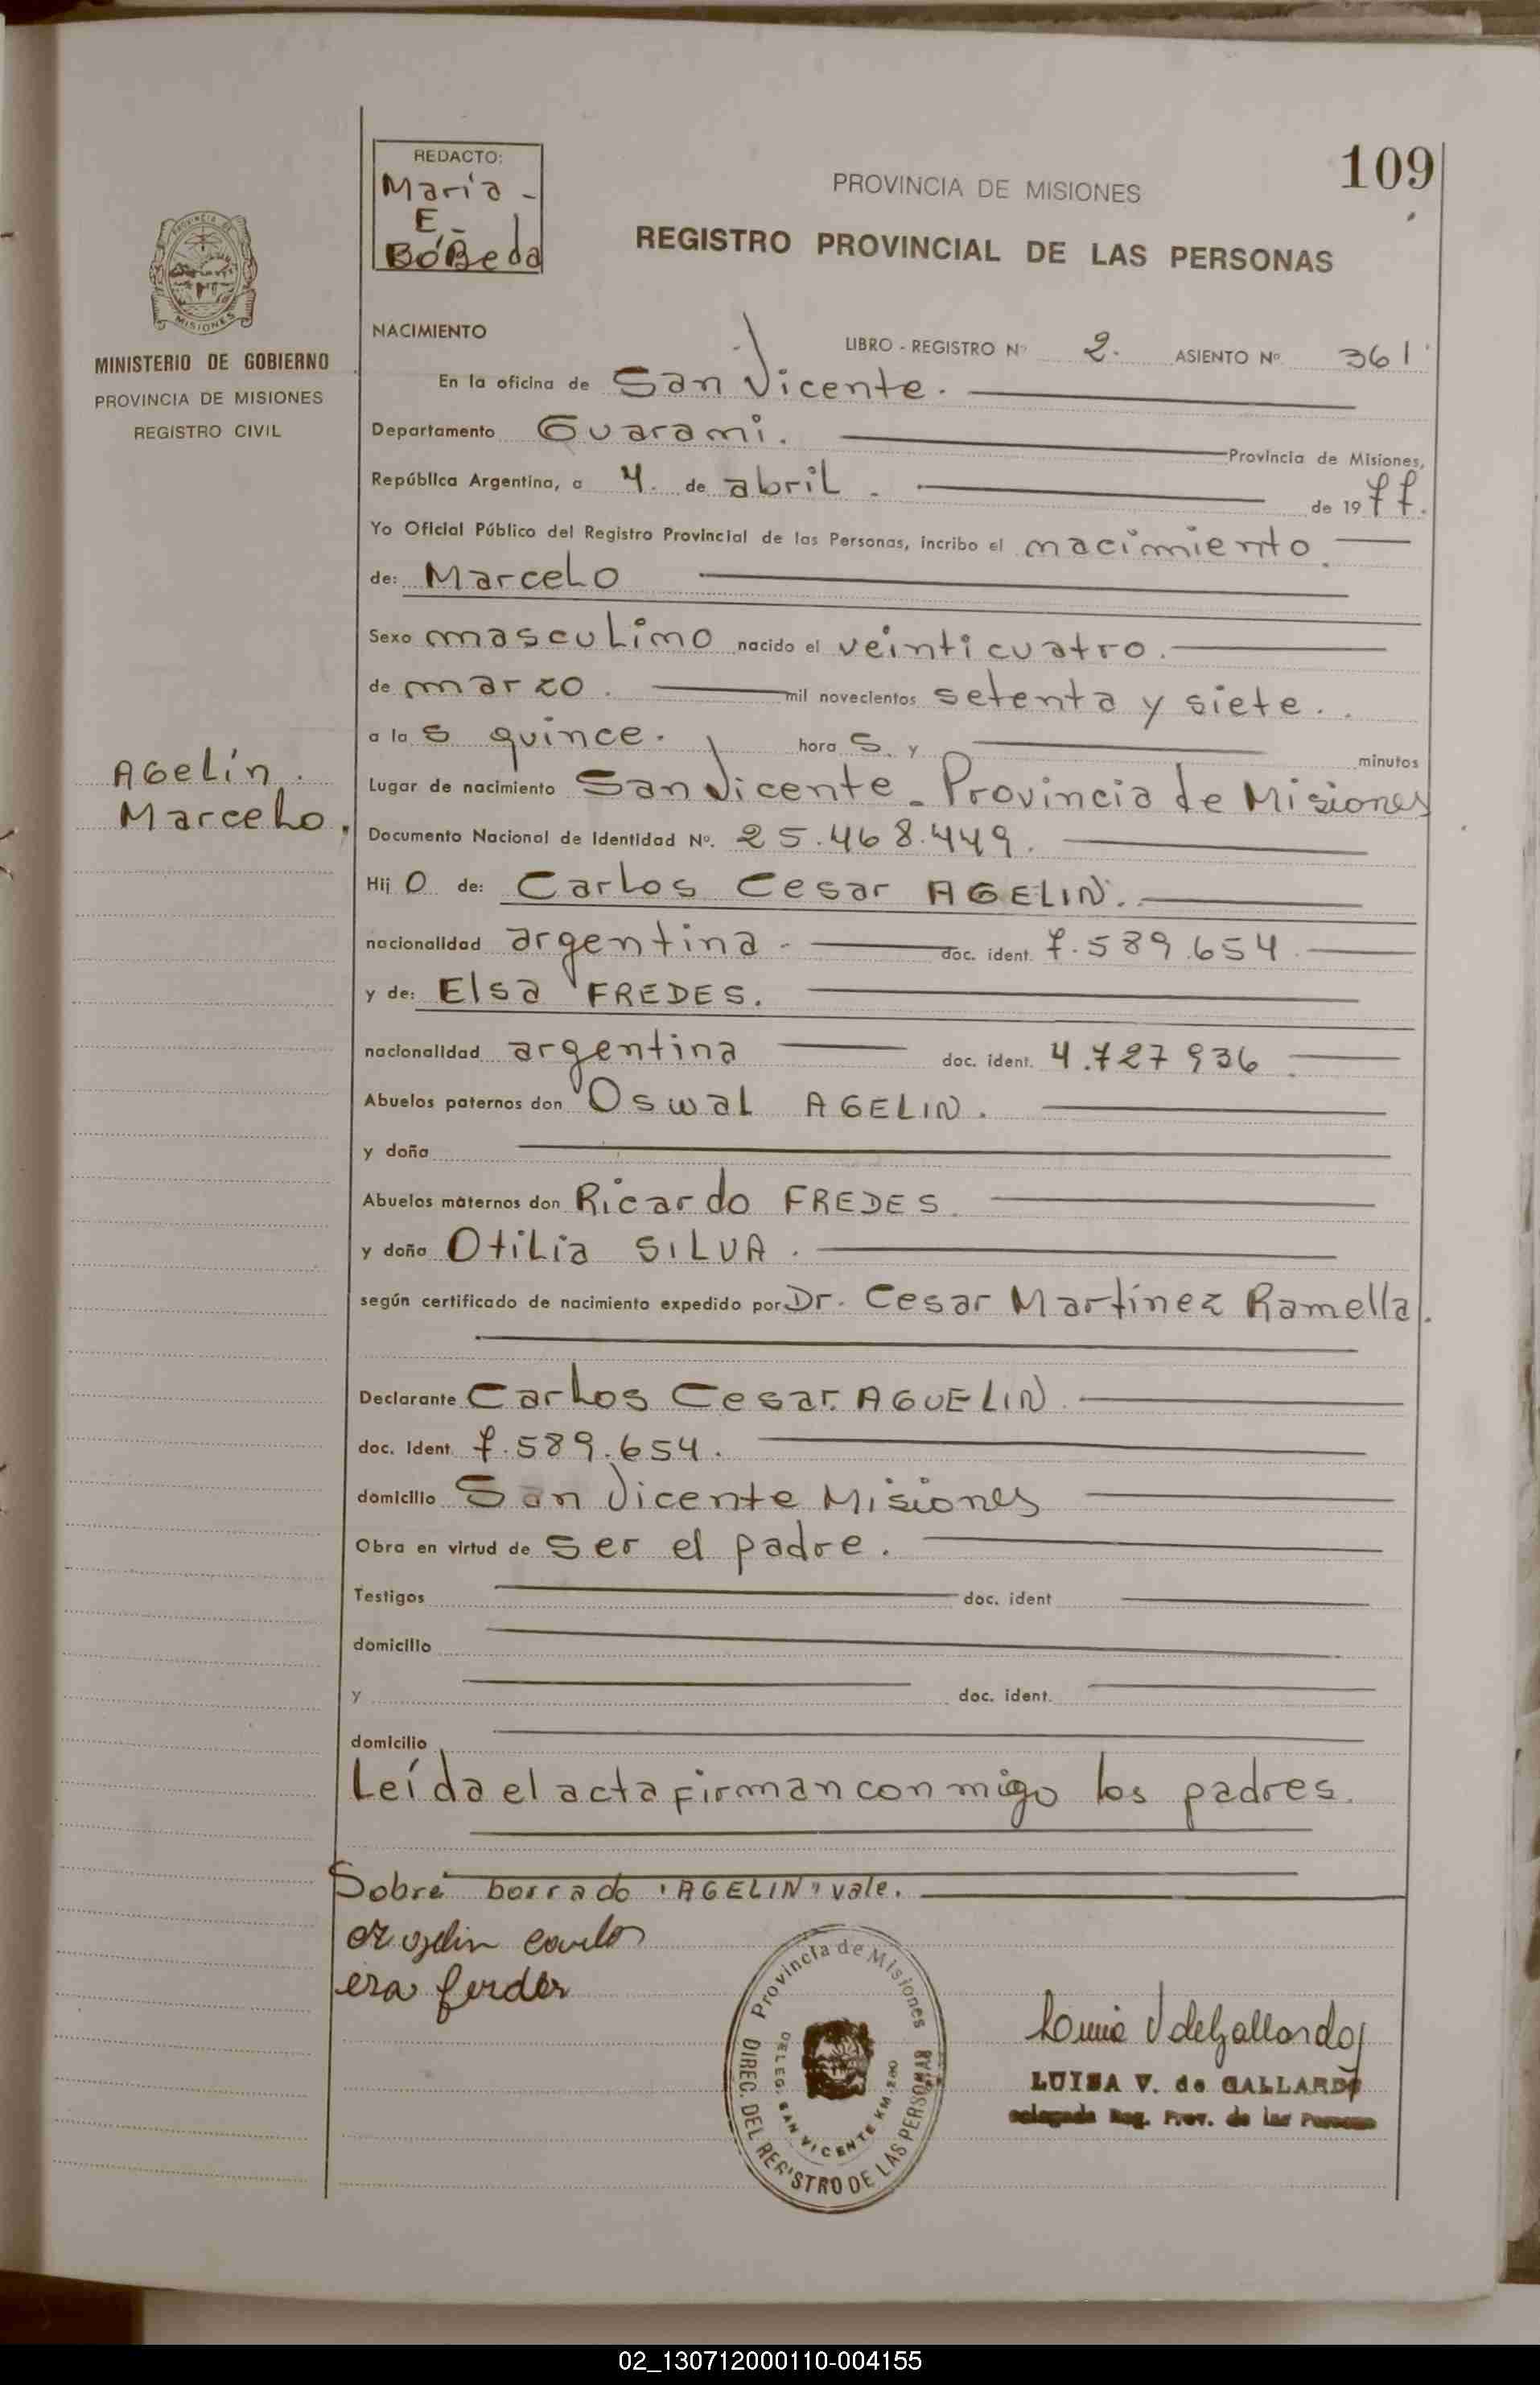 109
REDACTO:
Maria -
E.
BóBeda
PROVINCIA DE MISIONES
REGISTRO PROVINCIAL DE LAS PERSONAS
MISIONES
MINISTERIO DE GOBIERNO
PROVINCIA DE MISIONES
REGISTRO CIVIL
NACIMIENTO
LIBRO - REGISTRO Nº 2. ASIENTO Nº 361
En la oficina de San Vicente.
Departamento Guarami. Provincia de Misiones,
República Argentina, a 4. de abril. de 1977.
Yo Oficial Público del Registro Provincial de las Personas, incribo el nacimiento
de: Marcelo
Sexo masculino nacido el veinticuatro.
de marzo. mil novecientos setenta y siete.
a las quince. horas y minutos
Agelín.
Marcelo.
Lugar de nacimiento San Vicente - Provincia de Misiones
Documento Nacional de Identidad Nº. 25.468.449.
Hijo de: Carlos Cesar AGELIN.
nacionalidad argentina - doc. ident. 7.589.654
y de: Elsa FREDES.
nacionalidad argentina doc. ident. 4.727936
Abuelos paternos don Oswal AGELIN.
y doña
Abuelos maternos don Ricardo FREDES
y doña Otilia SILVA.
según certificado de nacimiento expedido por Dr. Cesar Martínez Ramella.
Declarante Carlos Cesar AGUELIN
doc. Ident. 7.589.654.
domicilio San Vicente Misiones
Obra en virtud de ser el padre.
Testigos doc. ident
domicilio
y doc. ident.
domicilio
Leída el acta firman conmigo los padres.
Sobre borrado "AGELIN" vale.
Provincia de Misiones
DIREC. DEL REGISTRO DE LAS PERSONAS
DELEG. SAN VICENTE KM. 200
LUISA V. de GALLARDO
Reg. Prov. de las
02_130712000110-004155